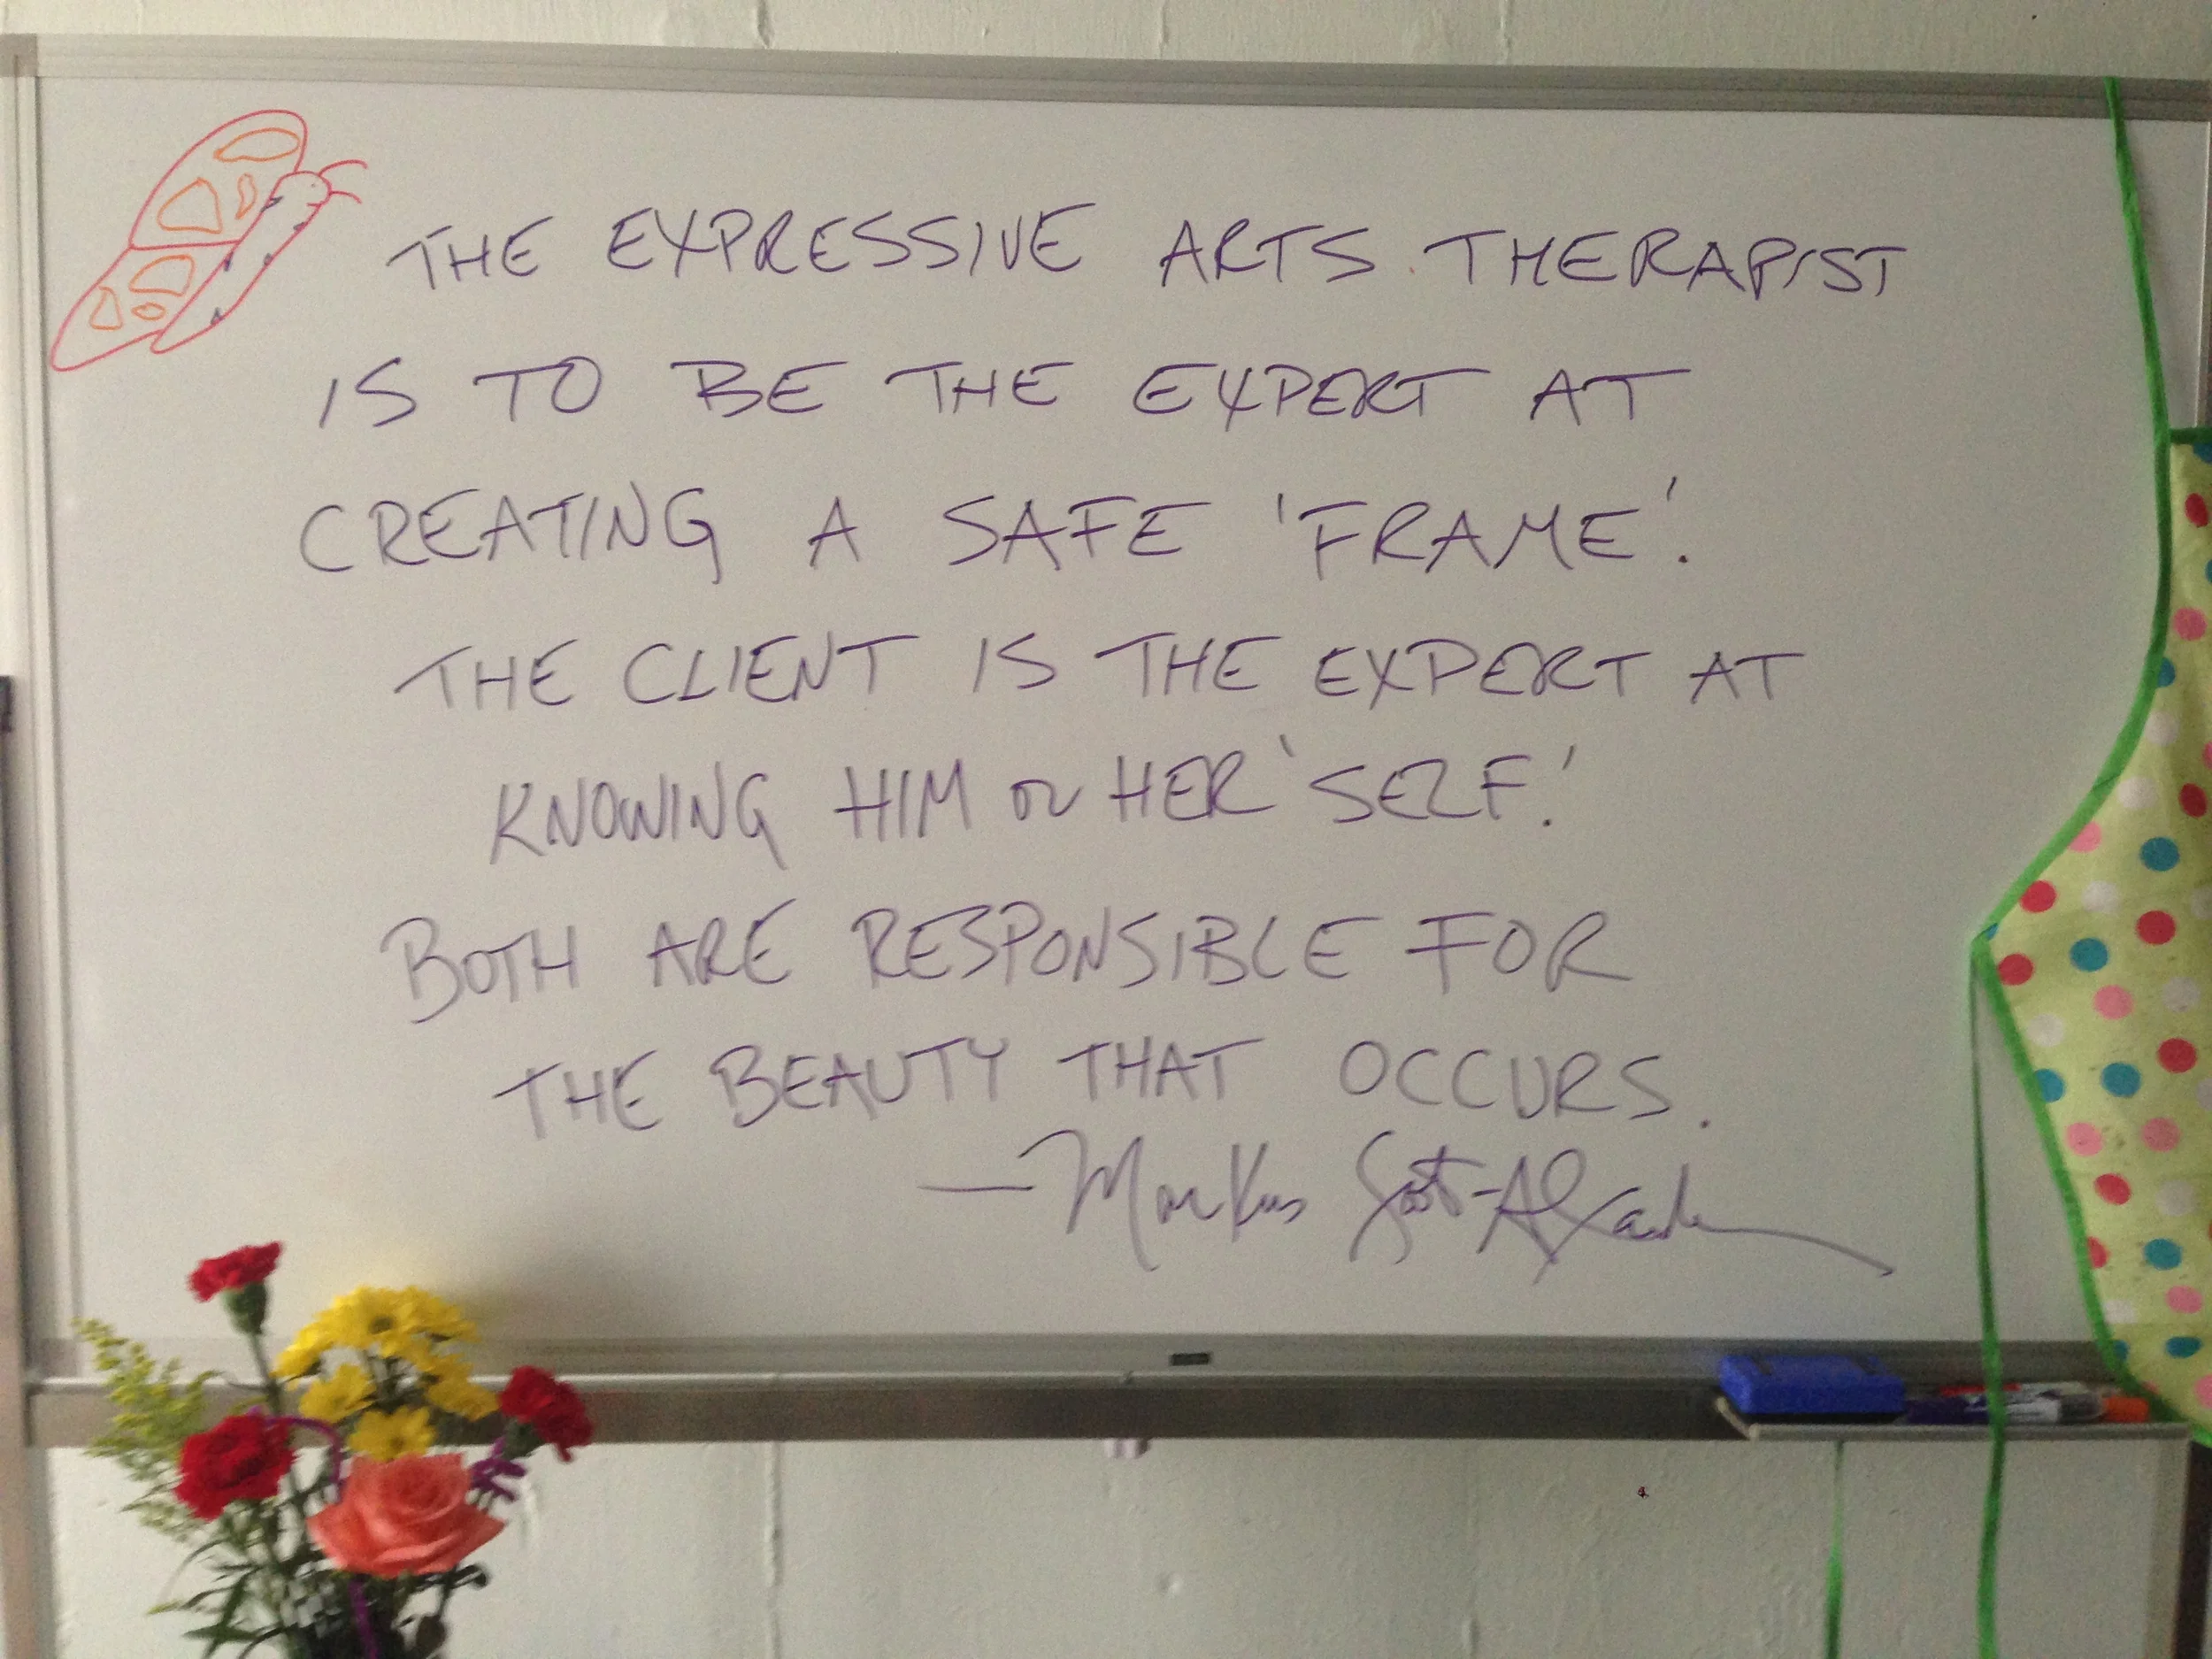 THE EXPRESSIVE ARTS THERAPIST
IS TO BE THE EXPERT AT
CREATING A SAFE 'FRAME'.
THE CLIENT IS THE EXPERT AT
KNOWING HIM OR HER 'SELF.'
BOTH ARE RESPONSIBLE FOR
THE BEAUTY THAT OCCURS.
—Markus Scott-Alexander